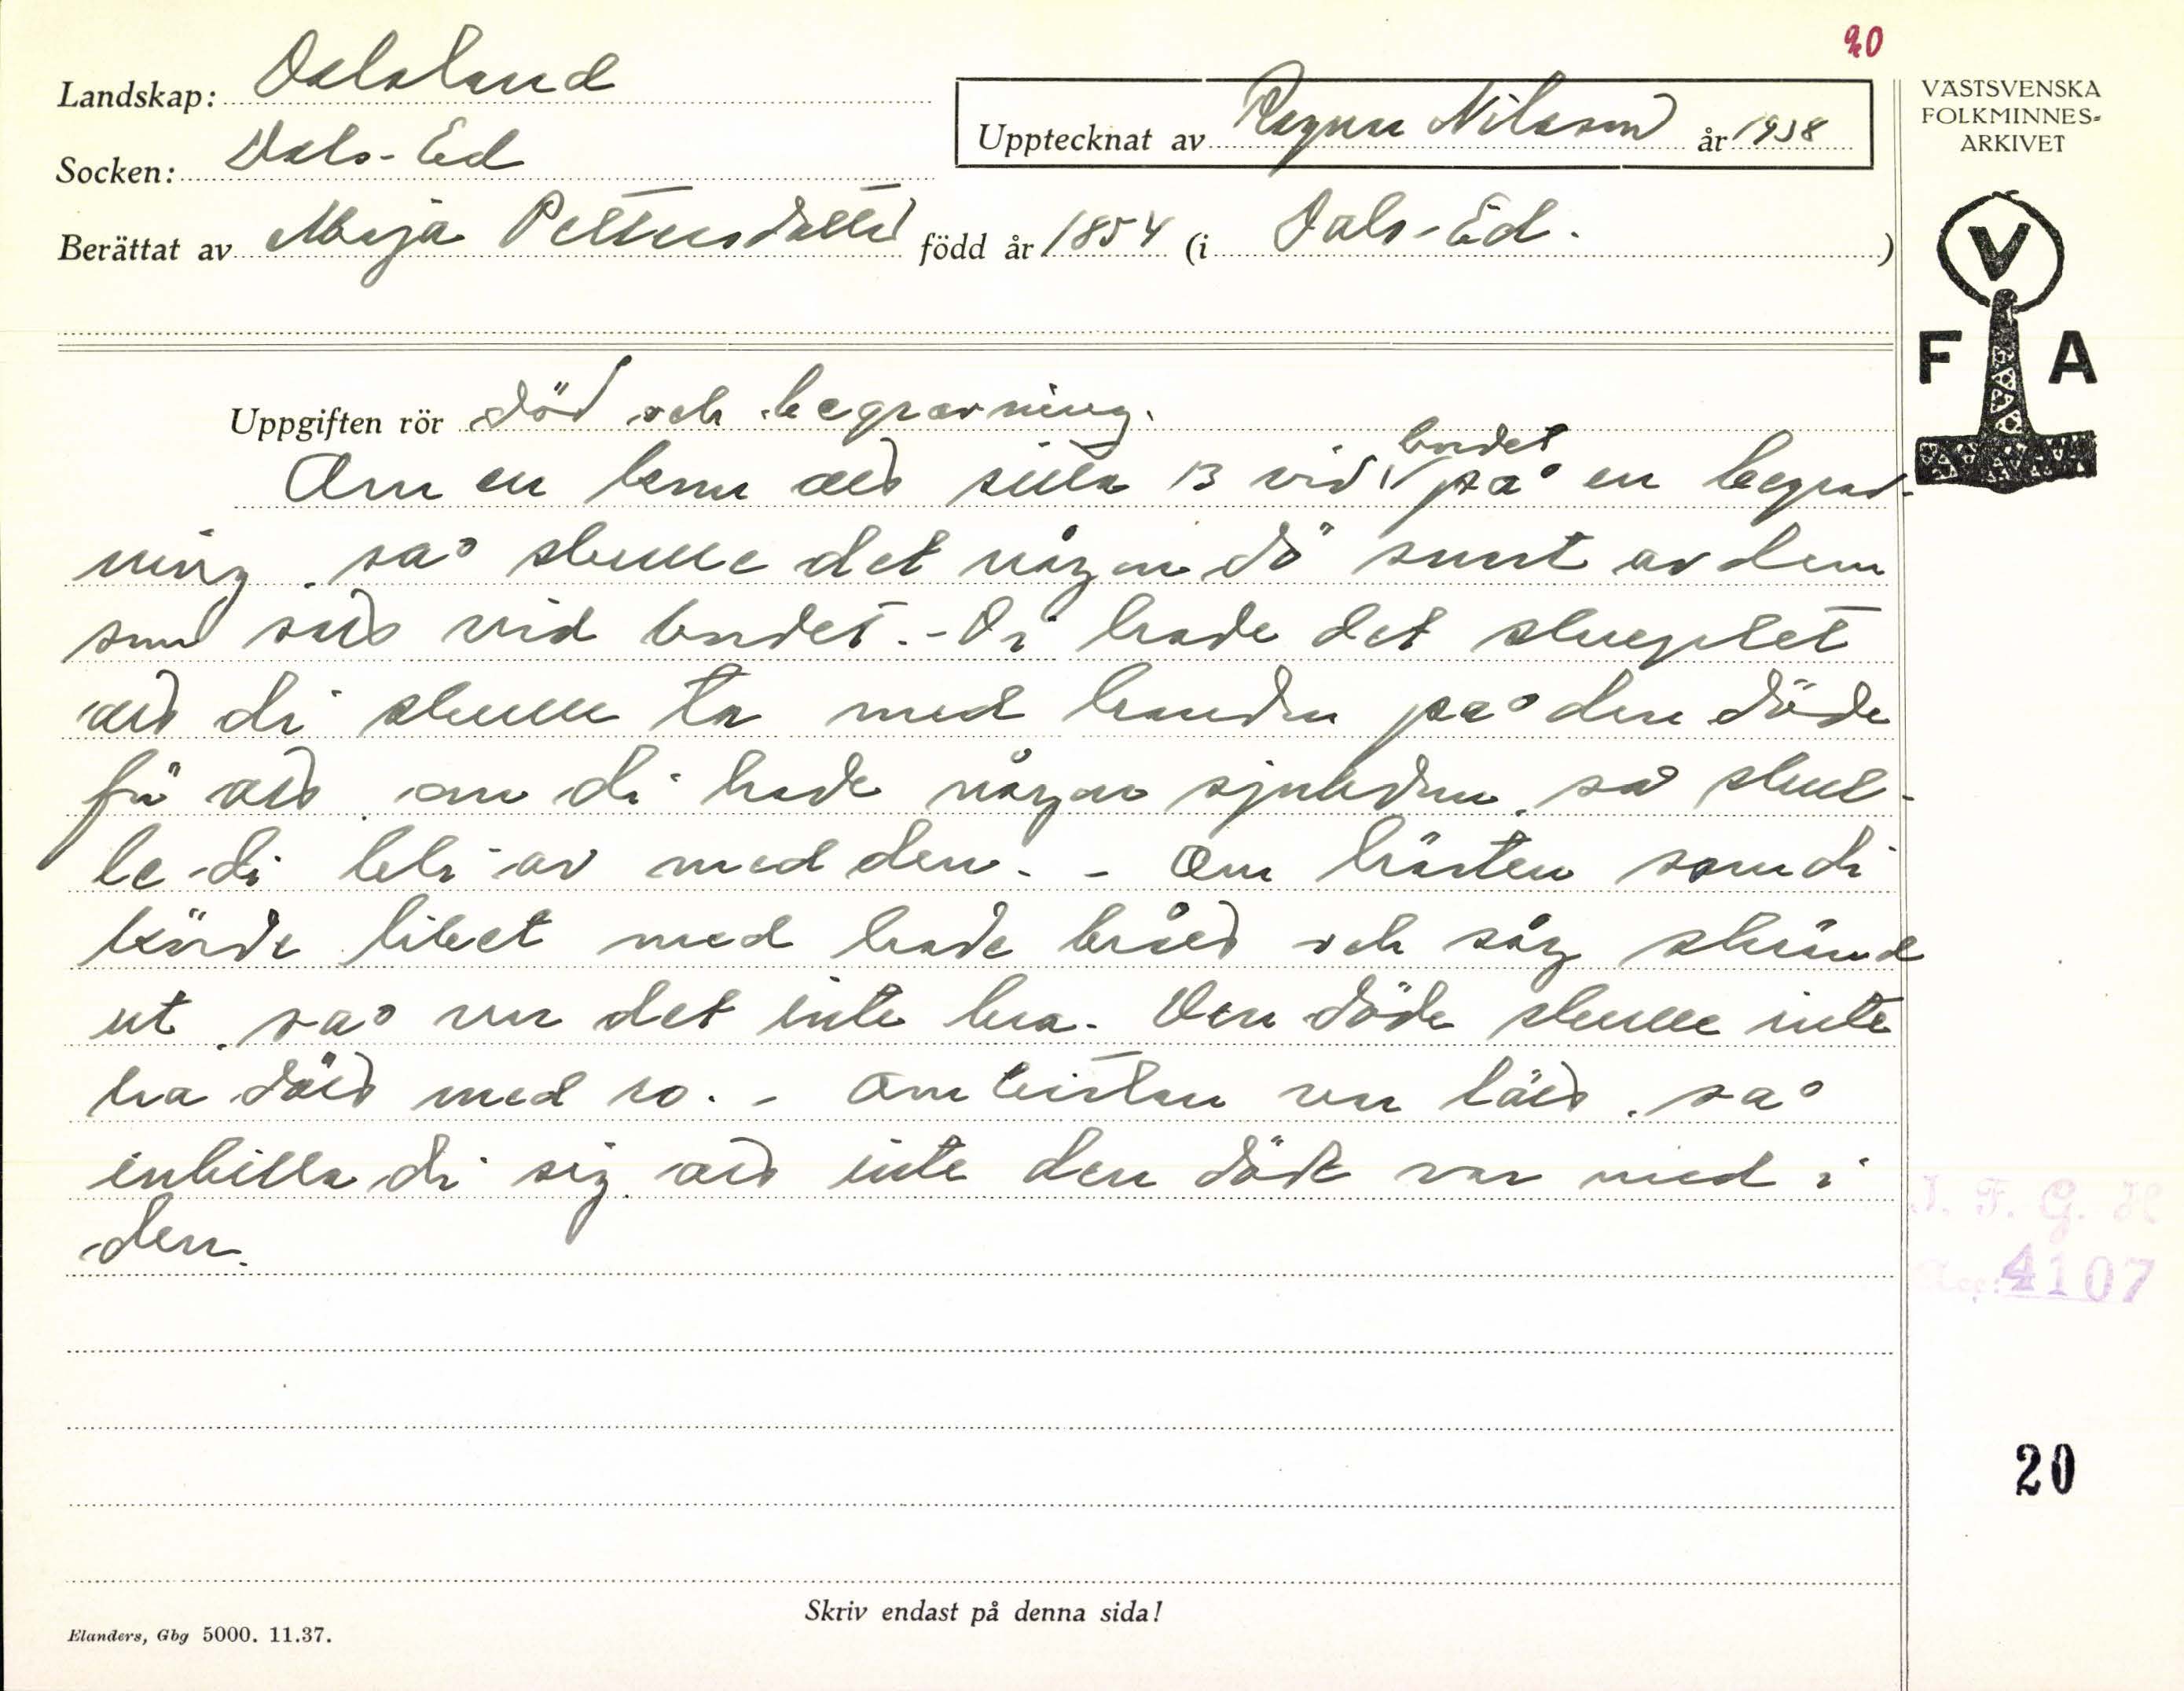 20
Landskap: Dalsland
Upptecknat av Ragnar Nilsson år 1938
VÄSTSVENSKA
FOLKMINNES=
ARKIVET
Socken: Dals-Ed
Berättat av Maja Pettersdotter född år 1854 (i Dals-Ed.)
V
F A
Uppgiften rör död och begravning.
Om en kom att sitta 13 vid bordet på en begrav-
ning, så skulle det någon dö snart av dem
som satt vid bordet. - Di hade det skreplet
att di skulle ta med handen på den döde
för att om di hade någon sjukdom, så skul-
le di bli av med den. - Om hästen som di
körde liket med hade brått och såg skrämd
ut, så var det inte bra. Den döde skulle inte
ha dött med ro. - Om kistan var lätt, så
inbilla di sig att inte den döde var med i
den.
I. F. G. H
Acc: 4107
20
Skriv endast på denna sida!
Elanders, Gbg 5000. 11.37.